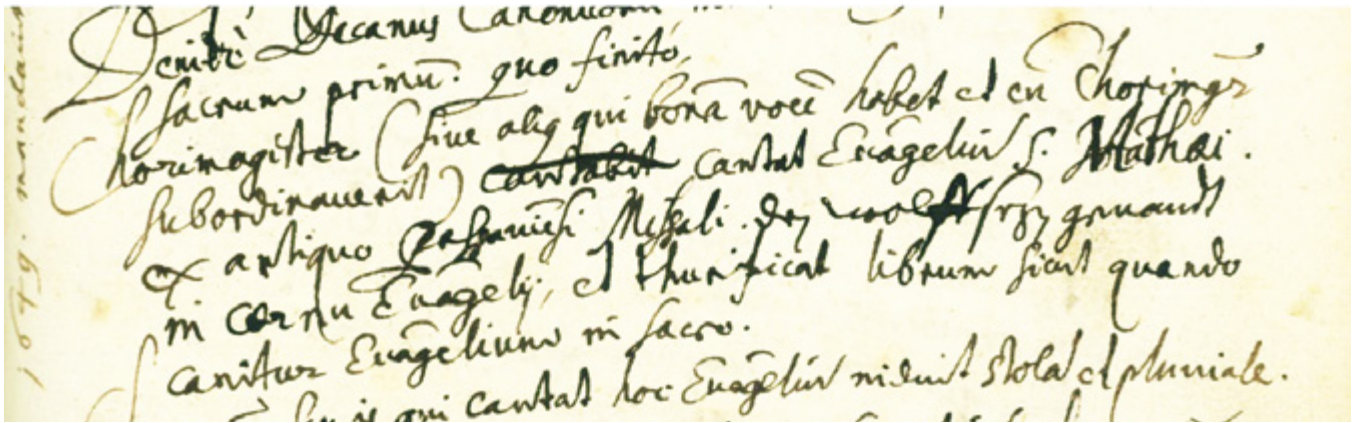 Decanus Canonicorum
sacrum primū. quo finito,
Chorimagister (sive aliq qui bonā vocē habet et cū Chorimgr̃
subordinaverit) cantabit cantat Evāgeliū S. Mathæi.
ex antiquo Missali. den genandt
in cornu Evāgelij, et thurificat librum sicut quando
canitur Evāgelium in sacro.
is qui cantat hoc Evāgeliū stolā et pluviale.
1649. mandatum